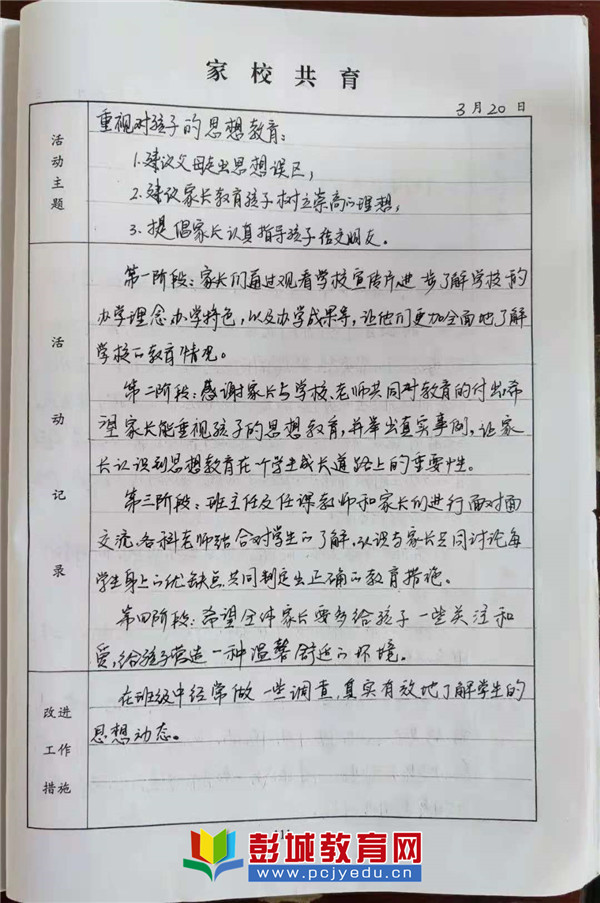 家校共育
3月20日
活动主题
重视对孩子的思想教育：
1.建议父母走出思想误区，
2.建议家长教育孩子树立崇高的理想，
3.提倡家长认真指导孩子结交朋友。
活动记录
第一阶段：家长们通过观看学校宣传片进步了解学校的
办学理念办学特色，以及办学成果等，让他们更加全面地了解
学校的教育情况。
第二阶段：感谢家长与学校、老师共同对教育的付出，希
望家长能重视孩子的思想教育，并举出真实事例，让家
长认识到思想教育在个学生成长道路上的重要性。
第三阶段：班主任及任课教师和家长们进行面对面
交流、各科老师结合对学生的了解、认识与家长共同讨论每
学生身上的优缺点共同制定出正确的教育措施。
第四阶段：希望全体家长要多给孩子一些关注和
爱，给孩子营造一种温馨舒适的环境。
改进工作措施
在班级中经常做一些调查，真实有效地了解学生的
思想动态。
彭城教育网
www.pcjyedu.cn